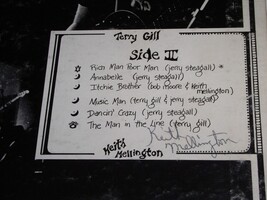 Terry Gill
Side III
Rich Man Poor Man (jerry steagall) *
Annabelle (jerry steagall)
Itchie Brother (bob Moore & Keith
mellington)
Music Man (terry gill & jerry steagall)
Dancin' Crazy (jerry steagall)
The Man in the Line (terry gill)
Keith
Mellington
Keith
Mellington